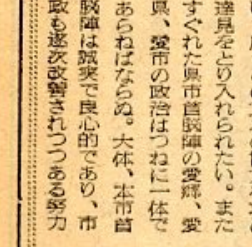 達見をとり入れられたい。また
すぐれた県市首脳陣の愛郷、愛
県、愛市の政治はつねに一体で
あらねばならぬ。大体、本市首
脳陣は誠実で良心的であり、市
政も逐次改善されつつある努力